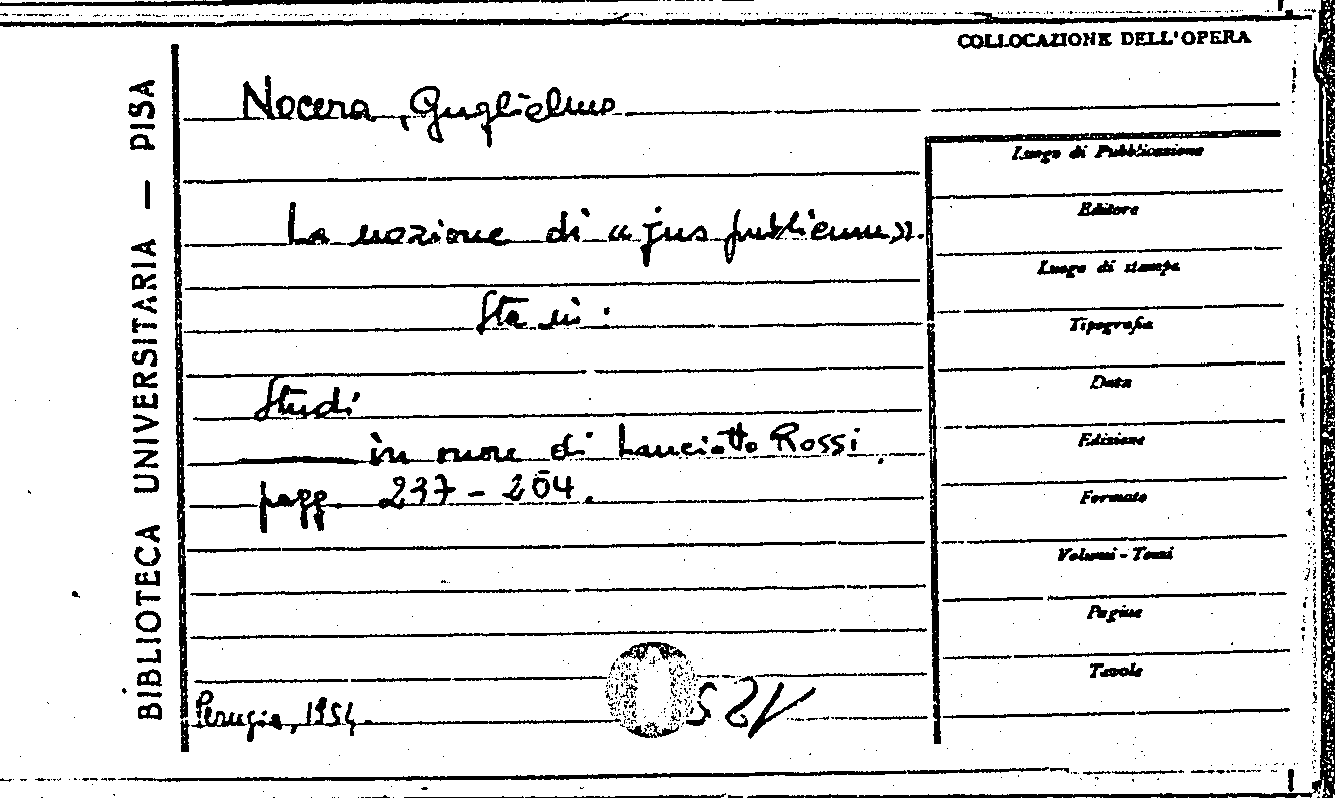 COLLOCAZIONE DELL'OPERA
BIBLIOTECA UNIVERSITARIA — PISA
Nocera, Guglielmo
La nozione di «jus publicum».
Sta in:
Studi
in onore di Lanciotto Rossi.
pagg. 237 - 204.
Perugia, 1954.
Luogo di Pubblicazione
Editore
Luogo di stampa
Tipografia
Data
Edizione
Formato
Volumi - Tomi
Pagine
Tavole